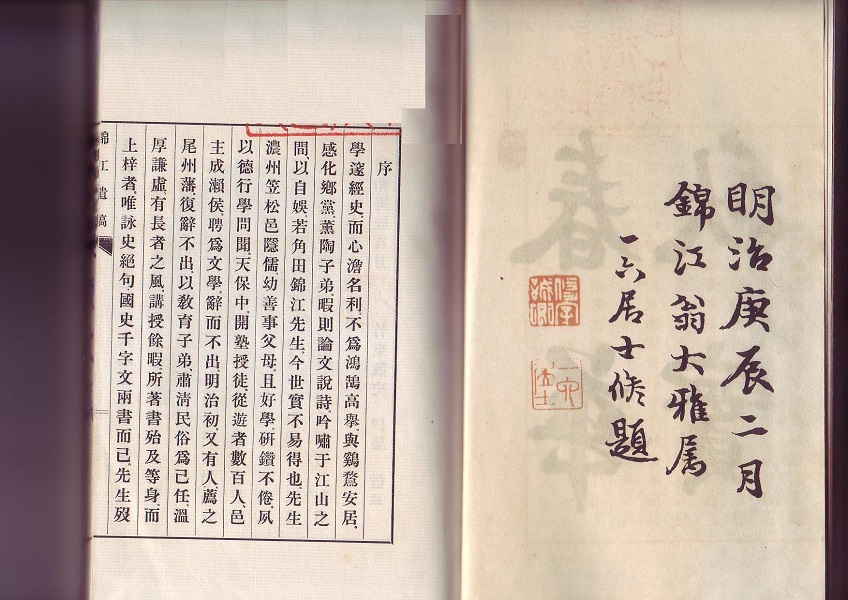 明治庚辰二月
錦江翁大雅属
一六居士修題
序
學邃經史、而心澹名利、不爲鴻鵠高擧、與鷄鶩安居、
感化鄕黨、薰陶子弟、暇則論文說詩、吟嘯于江山之
間、以自娛若角田錦江先生、今世實不易得也、先生
濃州笠松邑隱儒幼善事父母、且好學、研鑽不倦、夙
以德行學問聞天保中、開塾授徒從遊者數百人、邑
主成瀨侯、聘爲文學、辭而不出、明治初、又有人薦之
尾州藩、復辭不出、以敎育子弟、肅淸民俗爲己任、溫
厚謙虛有長者之風、講授餘暇、所著書殆及等身、而
上梓者、唯詠史絕句、國史千字文兩書而已、先生歿
錦江遺稿